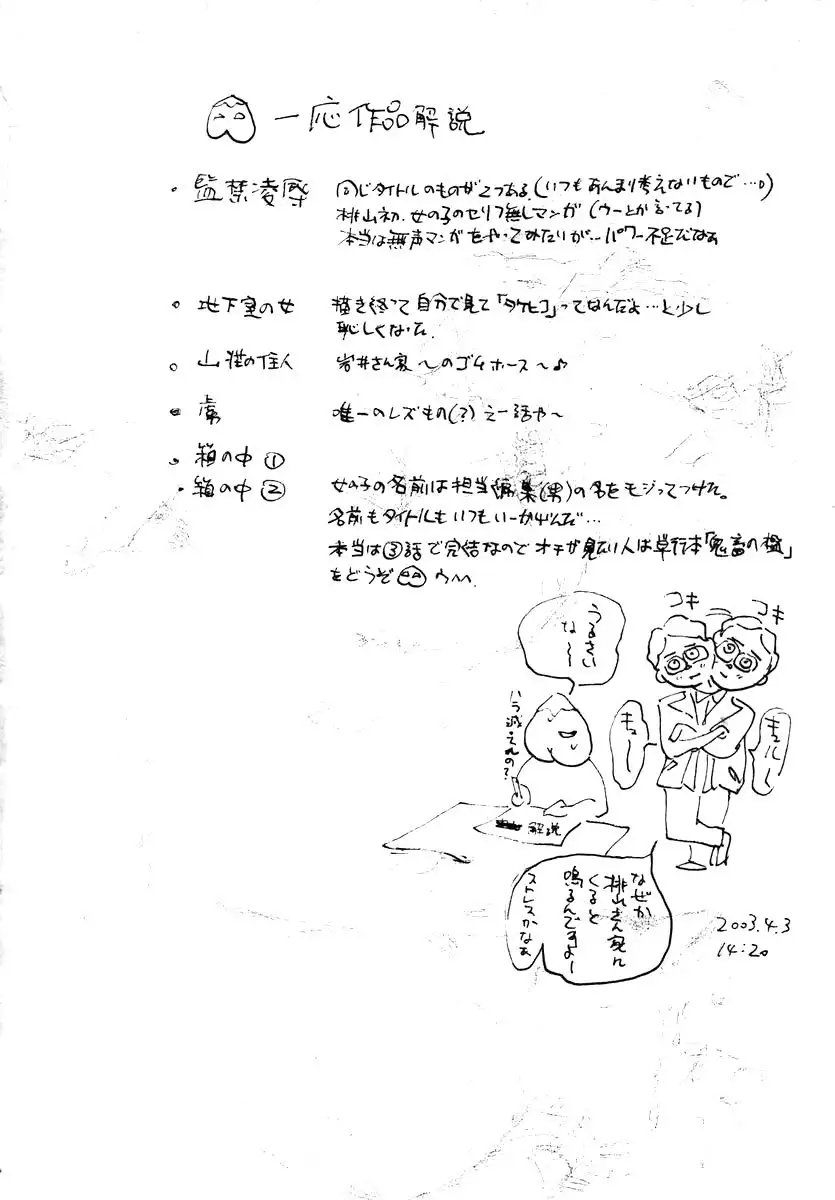 一応作品解説
・監禁凌辱
同じタイトルのものが2つある(いつもあんまり考えないもので…。)
桃山初、女の子のセリフ無しマンガ(ウーとか言ってる)
本当は無声マンガをやってみたいが…パワー不足だなぁ
地下室の女
描き終って自分で見て「タケヒコ」ってなんだよ…と少し
恥しくなった
山荘の住人
岩井さん家〜のゴムホース〜♪
唯一のレズもの(?)えー話や〜
箱の中①
・箱の中②
女の子の名前は担当編集(男)の名をモジってつけた。
名前もタイトルもいつもいーかげんだ…
本当は③話で完結なのでオチが見たい人は単行本「鬼畜の檻」
をどうぞ
コキ
コキ
うるさい
な〜〜
ハラ減ってんの?
キュー
キュルル
解説
なぜか
桃山さん家に
くると
鳴るんですよー
ストレスかなぁ
2003.4.3
14:20